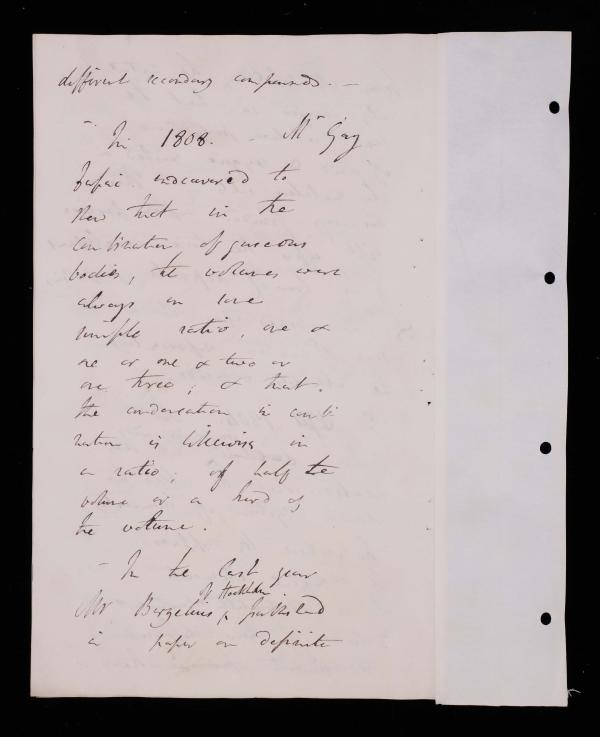 different secondary compounds. —
— In 1808. Mr Gay
Lussac endeavored to
shew that in the
combination of gaseous
bodies, the volumes were
always in some
simple ratio, one &
one or one & two or
one three; & that.
the condensation in combi
nation is likewise in
a ratio; of half the
volume or a third of
the volume.
— In the last year
of Stockholm
Mr Berzelius ^ published
a paper on definite